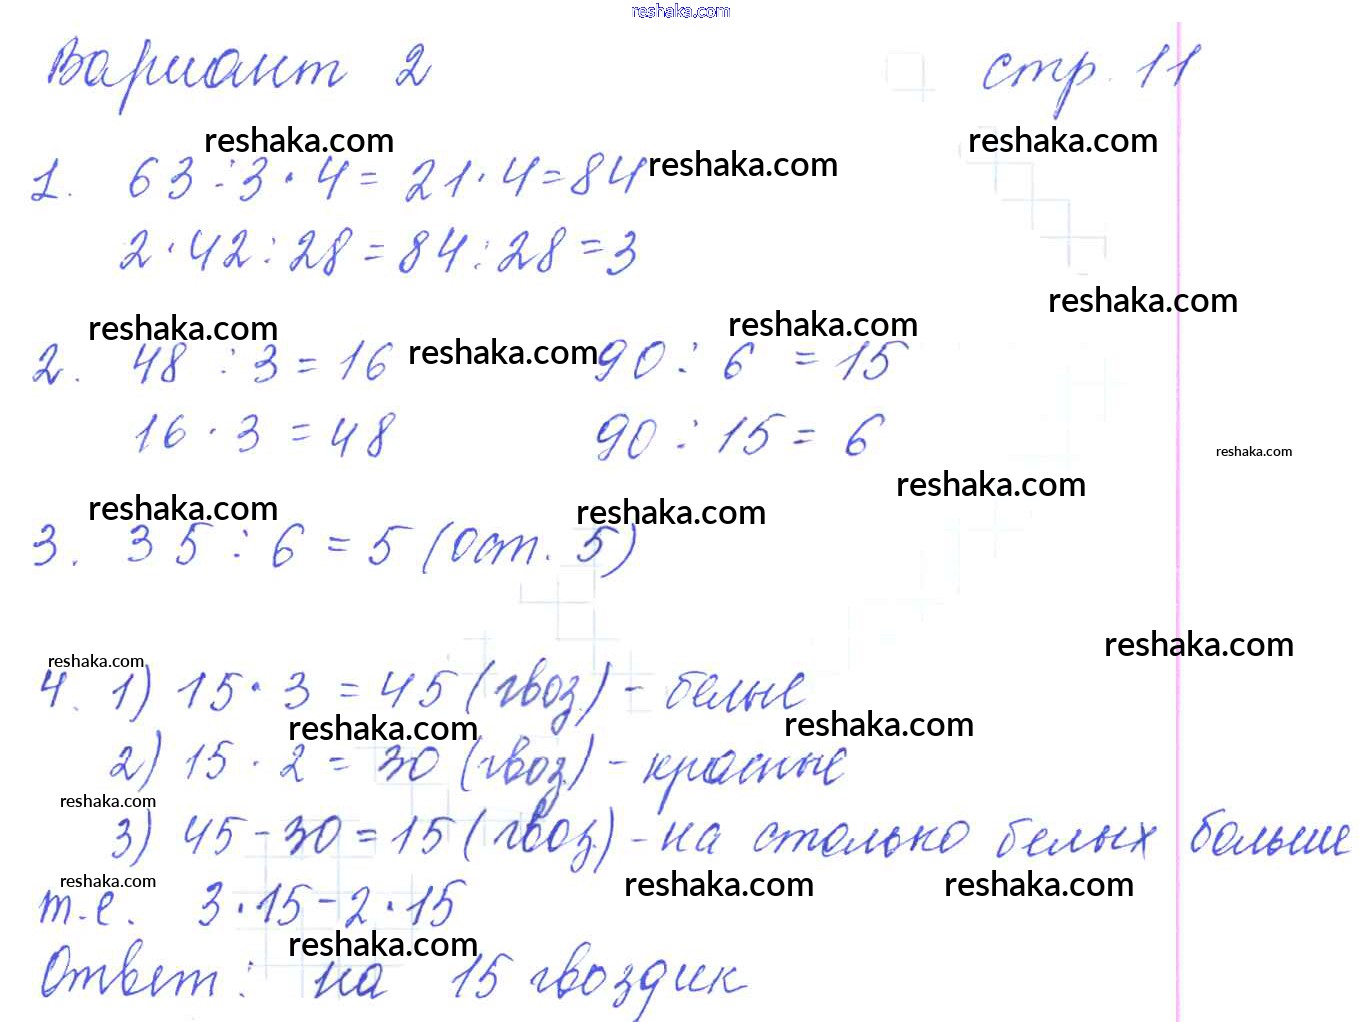 reshaka.com
Вариант 2 стр. 11
reshaka.com reshaka.com
reshaka.com
1. 63 : 3 · 4 = 21 · 4 = 84
2 · 42 : 28 = 84 : 28 = 3
reshaka.com
reshaka.com reshaka.com
reshaka.com
2. 48 : 3 = 16 90 : 6 = 15
16 · 3 = 48 90 : 15 = 6
reshaka.com
reshaka.com
reshaka.com reshaka.com
3. 35 : 6 = 5 (ост. 5)
reshaka.com
reshaka.com
4. 1) 15 · 3 = 45 (гвоз.) - белые
reshaka.com reshaka.com
2) 15 · 2 = 30 (гвоз.) - красные
reshaka.com
3) 45 - 30 = 15 (гвоз.) - на столько белых больше
reshaka.com reshaka.com reshaka.com
т.е. 3 · 15 - 2 · 15
reshaka.com
Ответ: на 15 гвоздик